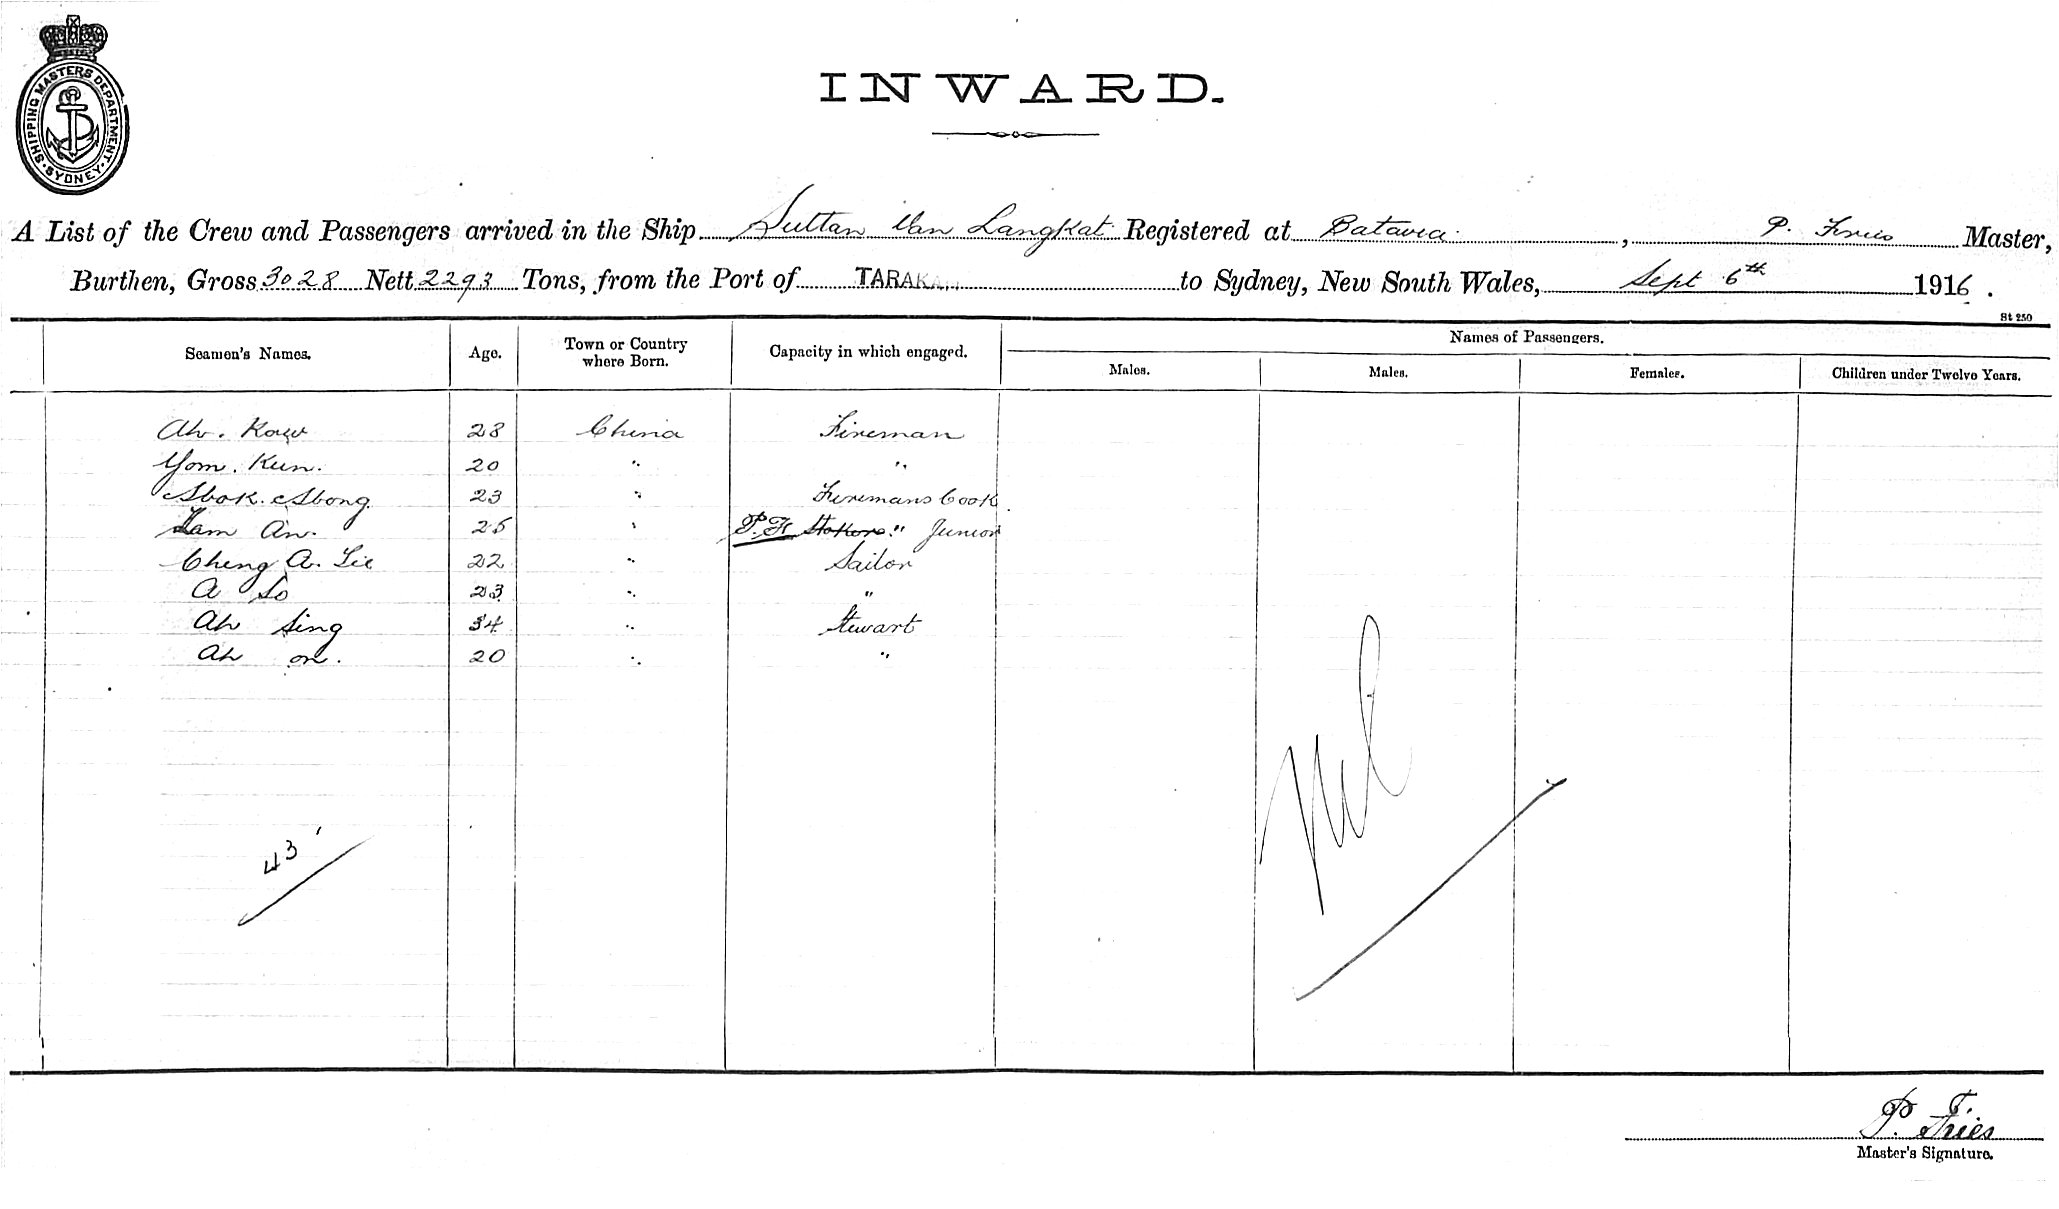 SHIPPING MASTERS DEPARTMENT · SYDNEY ·
INWARD.
A List of the Crew and Passengers arrived in the Ship Sultan Van Langkat Registered at Batavia , P. Fries Master,
Burthen, Gross 3028 Nett 2293 Tons, from the Port of TARAKAN to Sydney, New South Wales, Sept 6th 1916.
St 250
Seamen's Names. Age. Town or Country where Born. Capacity in which engaged. Names of Passengers.
Males. Males. Females. Children under Twelve Years.
Ah. Kow 28 China Fireman
Yom. Kun. 20 " "
23 " Firemans Cook
Lam An. 25 " P.F. Stokers " Junior
Cheng A. Lie 22 " Sailor
A So 23 " "
Ah Sing 34 " Stewart
Ah on. 20 " "
Nil
43
P. Fries
Master's Signature.